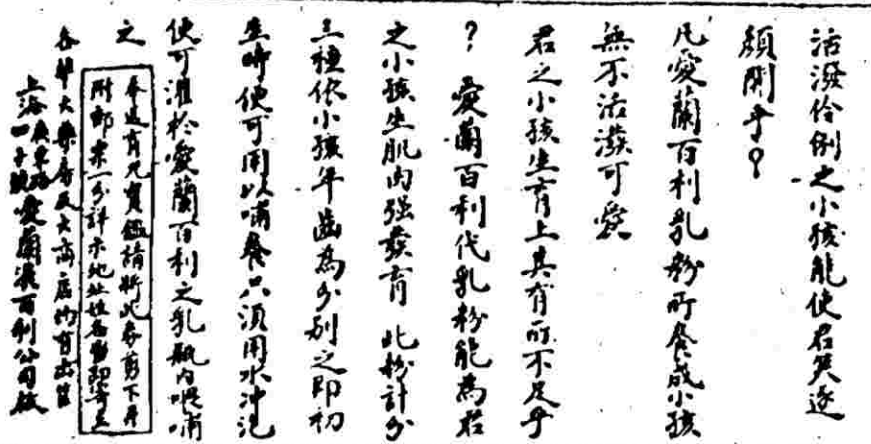 活潑伶俐之小孩能使君笑逐
顏開乎?
凡愛蘭百利乳粉所養成小孩
無不活潑可愛
君之小孩生育上其有所不足乎
? 愛蘭百利代乳粉能為君
之小孩生肌肉强發育 此粉計分
三種依小孩年齒為分別之即初
生時便可用以哺養只須用水沖泡
便可灌於愛蘭百利之乳瓶內喂哺
之
奉送育兒寶鑑請將此券剪下并
附郵票一分詳示地址姓名當即寄上
各埠大藥房及大商店均有出售
上海 四十號愛蘭漢百利公司啟